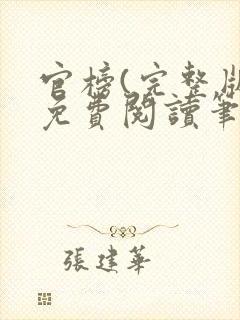 官榜(完整版
免費閱讀筆
張建華